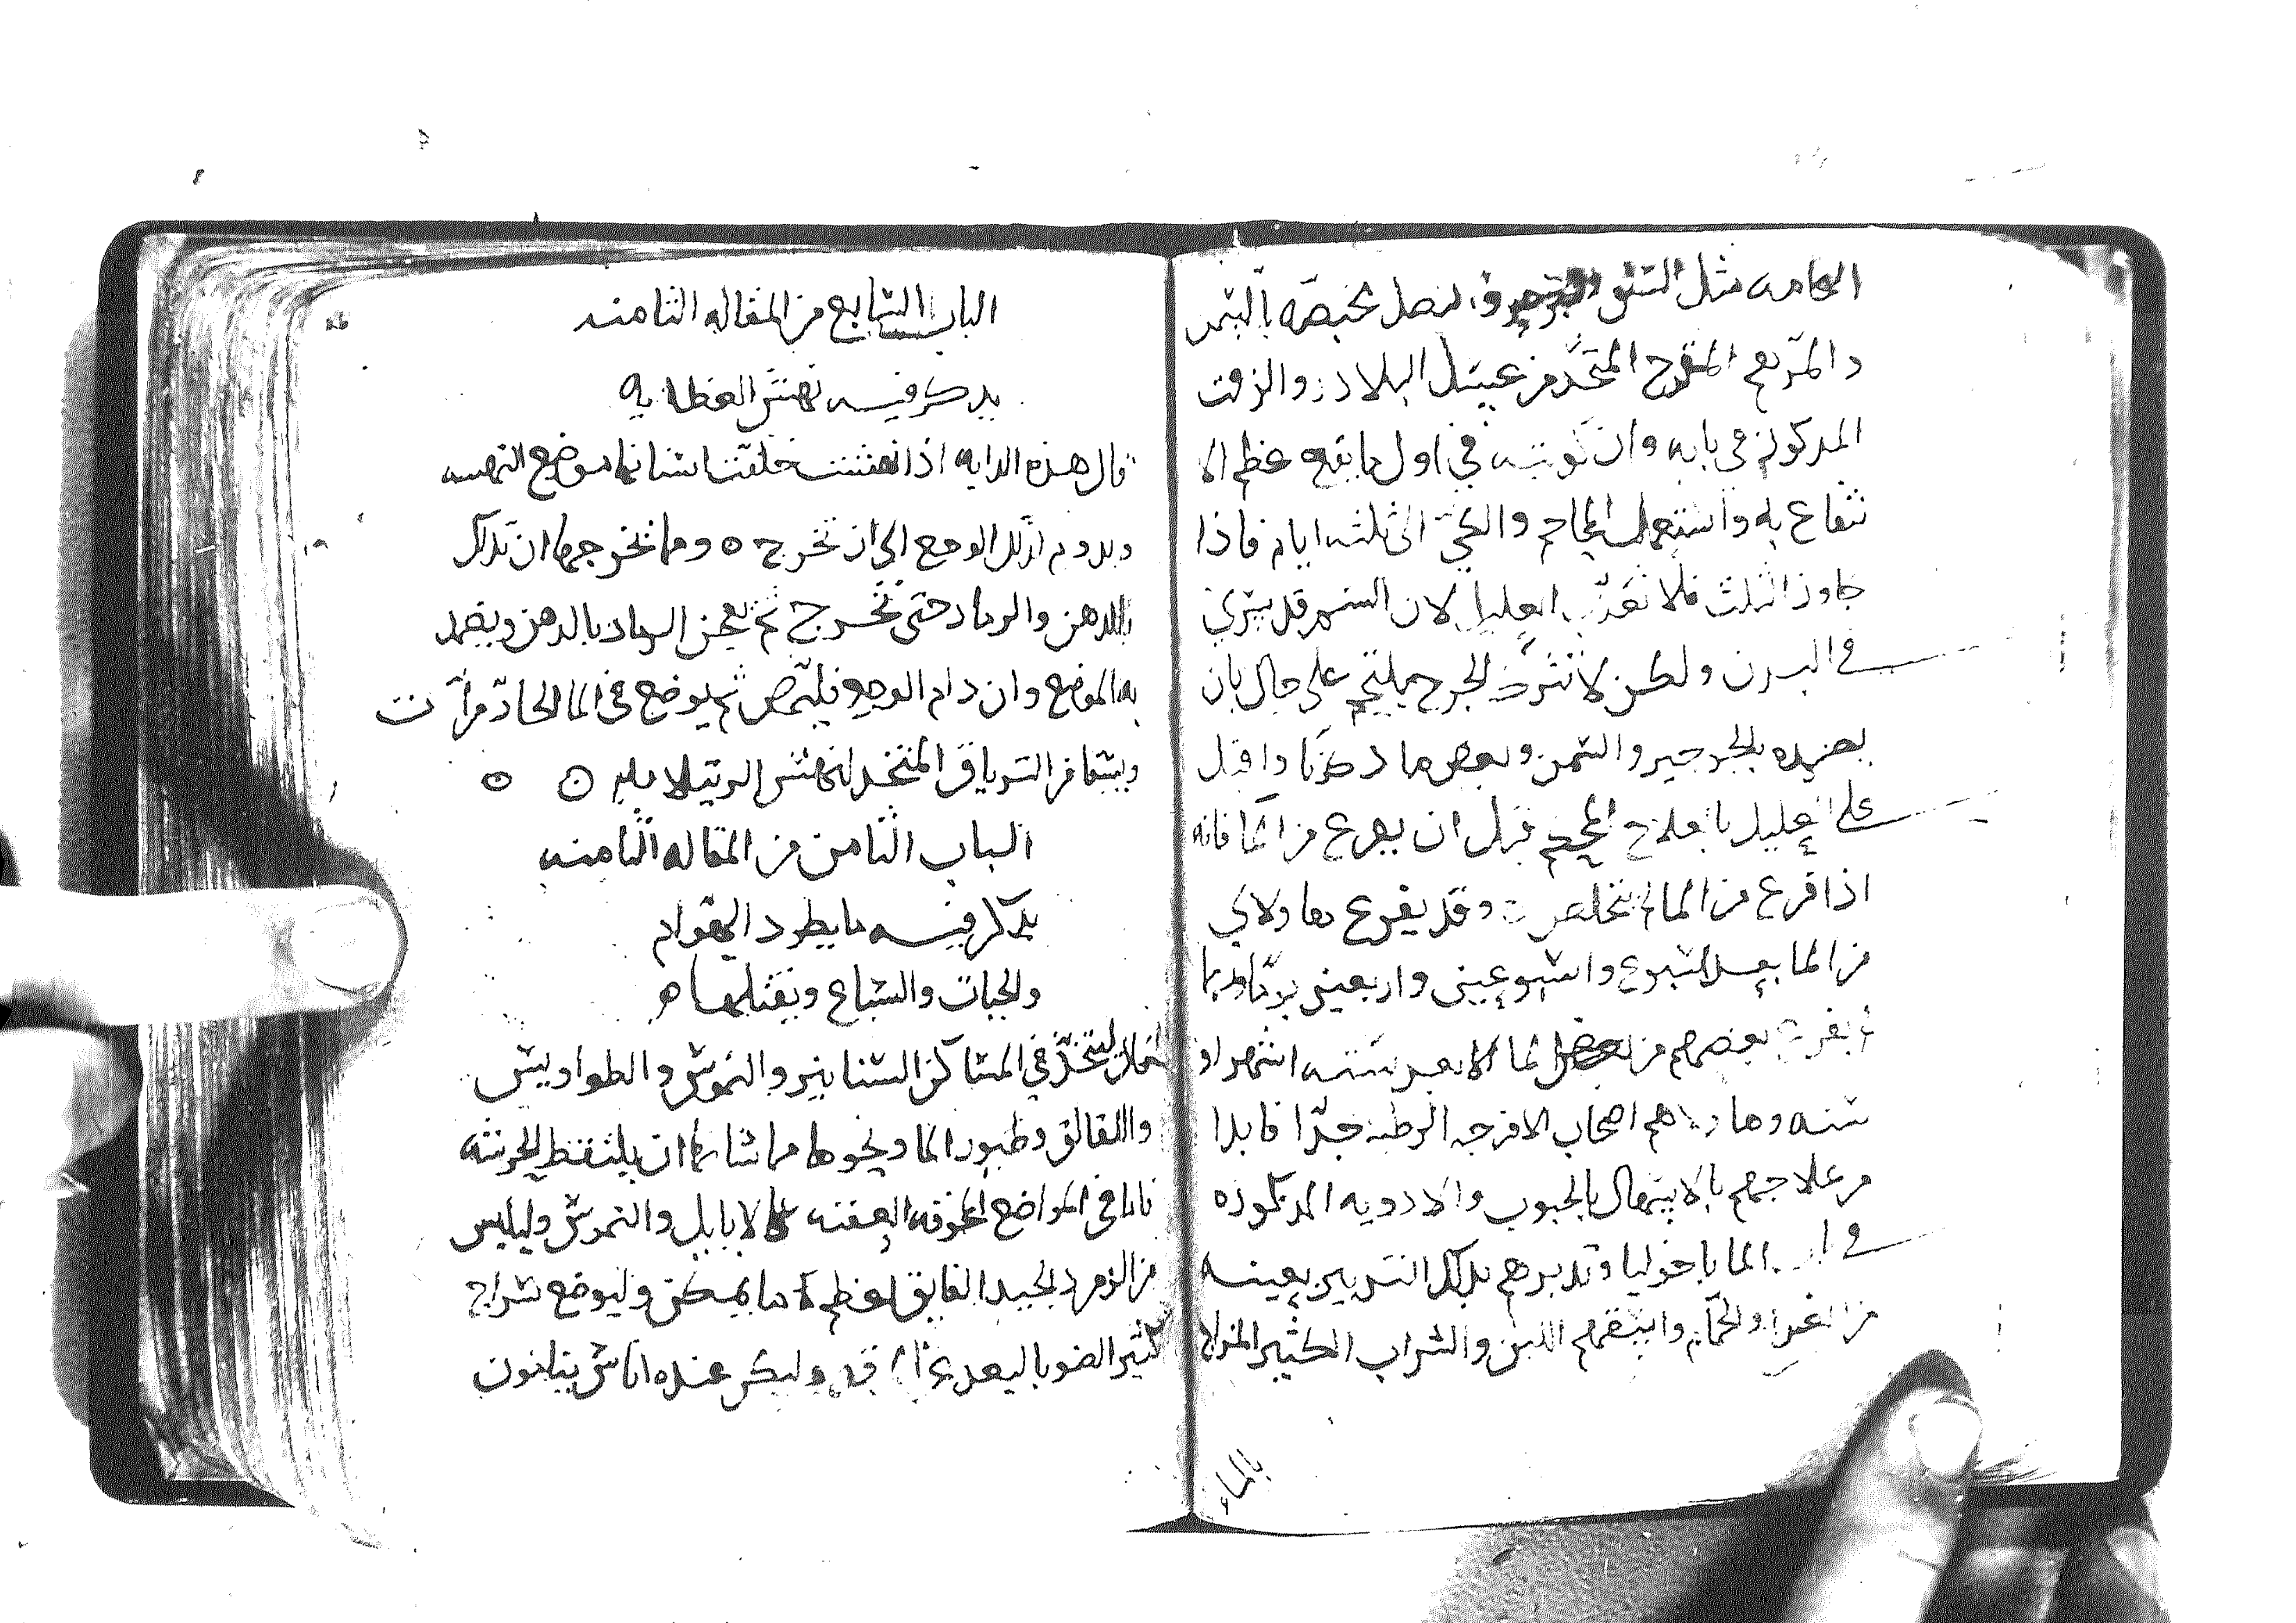 الحامه مثل الشق بصل يخصه بالشمر
دالمرهم المقرح المتخذ من عسل البلادر والزفت
المدكور في بابه وان كويته في اول ما يقع عظم الا
نتفاع به واستعمل المحاجم والكي الى ثلثه ايام فاذا
جاوز الثلث فلا تعذب العليل لان السم قد يسري
في البدن ولكن لا تترك الجرح يلتحم على حال بان
يضمده بالجرجير والسمن وبعض ما ذكرنا واقبل
على العليل بالعلاج قبل ان يفزع من الما فانه
اذا فزع من الما لم يتخلص وقد يفزع هاولاي
من الما بعد اسبوع واسبوعين واربعين يوما وربما
يفزع بعضهم من الما الا بعد سته اشهر او
سنه وهاولا هم اصحاب الامزجه الرطبه جدا فابدا
من علاجهم بالاسهال بالحبوب والادويه المذكوره
في الماليخوليا وتدبرهم بذلك التدبير بعينه
من الغذا والحمام واسقهم اللبن والشراب الكثير المزاج
بالماء
الباب السابع من المقاله الثامنه
يدكر فيه نهش العظايه
قال هذه الدابه اذا نهشت خلفت اسنانها موضع النهسه
ويدوم لذلك الوجع الى ان تخرج ه ومما يخرجها ان تدلك
بالدهن والرماد حتى تخرج ثم يعجن الرماد بالدهن ويضمد
به الموضع وان دام الوجع فليمص ثم يوضع في الما الحار مرات
ويسقا من الترياق المتخذ لنهش الرتيلا ه ه
الباب الثامن من المقاله الثامنه
يدكر فيه ما يطرد الهوام
والحيات والسباع ويقتلها ه
ليتخذ في المساكن السنانير والنموس والطواويس
واللقالق وطيور الما ونحوها مما شانها ان يلتقط الحرشه
فاما في المواضع المخوفه العفنه فالايايل والنموس وليلبس
من الزمرد الجيد الفايق اعظم ما يمكن وليوضع سراج
كثير الضو بالبعد وليكن عنده اناس يتانون